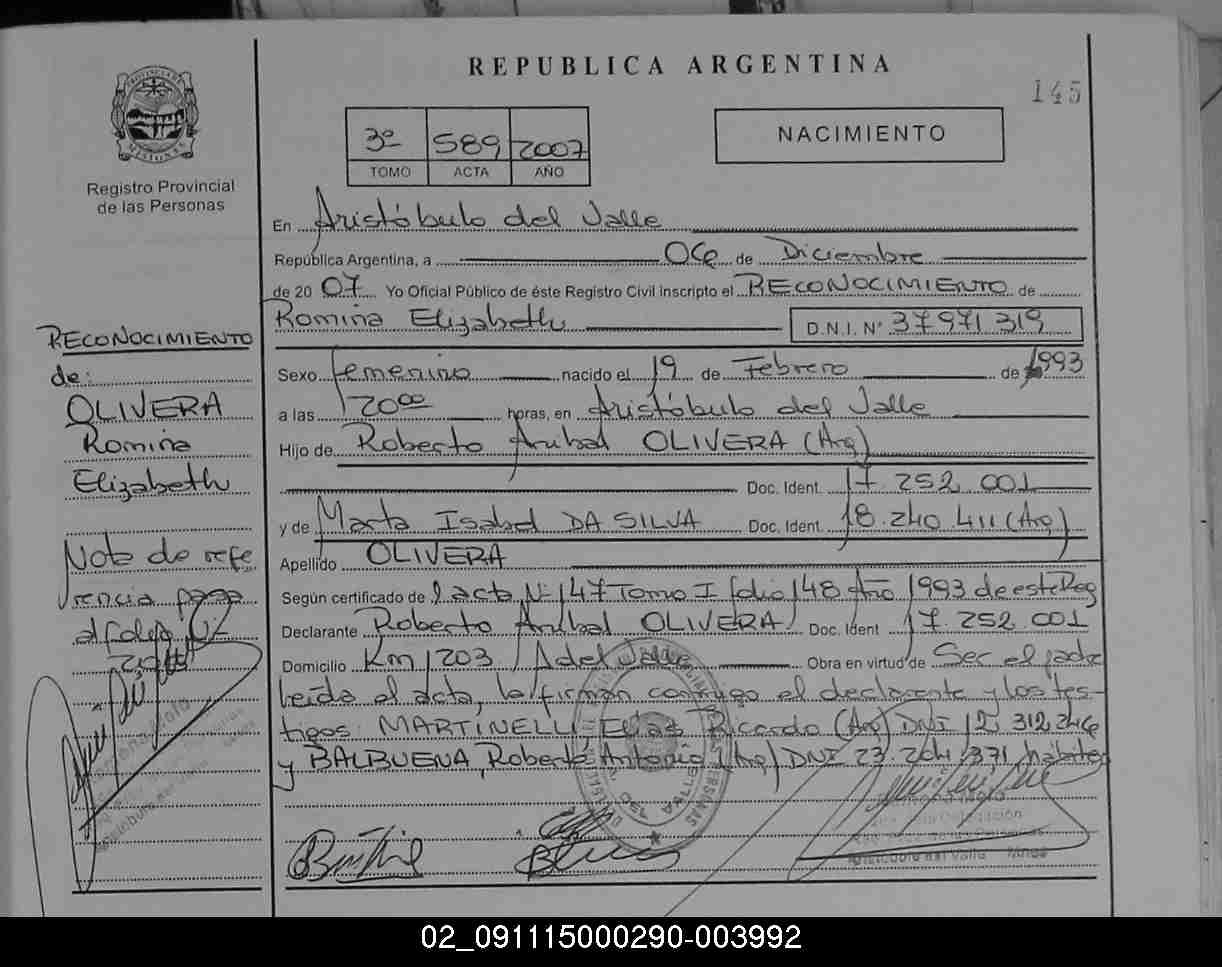 REPUBLICA ARGENTINA
145
PROVINCIA DE MISIONES
Registro Provincial
de las Personas
3º 589 2007
TOMO ACTA AÑO
NACIMIENTO
En Aristóbulo del Valle
República Argentina, a 06 de Diciembre
de 2007 Yo Oficial Público de éste Registro Civil inscripto el RECONOCIMIENTO de
Romina Elizabeth D.N.I. Nº 37971319
Sexo femenino nacido el 19 de Febrero de 1993
a las 20⁰⁰ horas, en Aristóbulo del Valle
Hijo de Roberto Anibal OLIVERA (Arg)
Doc. Ident. 17.252.001
y de Marta Isabel DA SILVA Doc. Ident. 18.240.411 (Arg)
Apellido OLIVERA
Según certificado de acta Nº 147 Tomo I folio 148 Año 1993 de este Reg
Declarante Roberto Anibal OLIVERA Doc. Ident 17.252.001
Domicilio Km 1203 A del Valle Obra en virtud de Ser el padre
leída el acta, la firman conmigo el declarante y los tes-
tigos: MARTINELLI Elias Ricardo (Arg) DNI 12.312.246
y BALBUENA, Roberto Antonio (Arg) DNI 23.204.371, hábiles
RECONOCIMIENTO
de:
OLIVERA
Romina
Elizabeth
Nota de refe
rencia pasa
al folio Nº
02_091115000290-003992